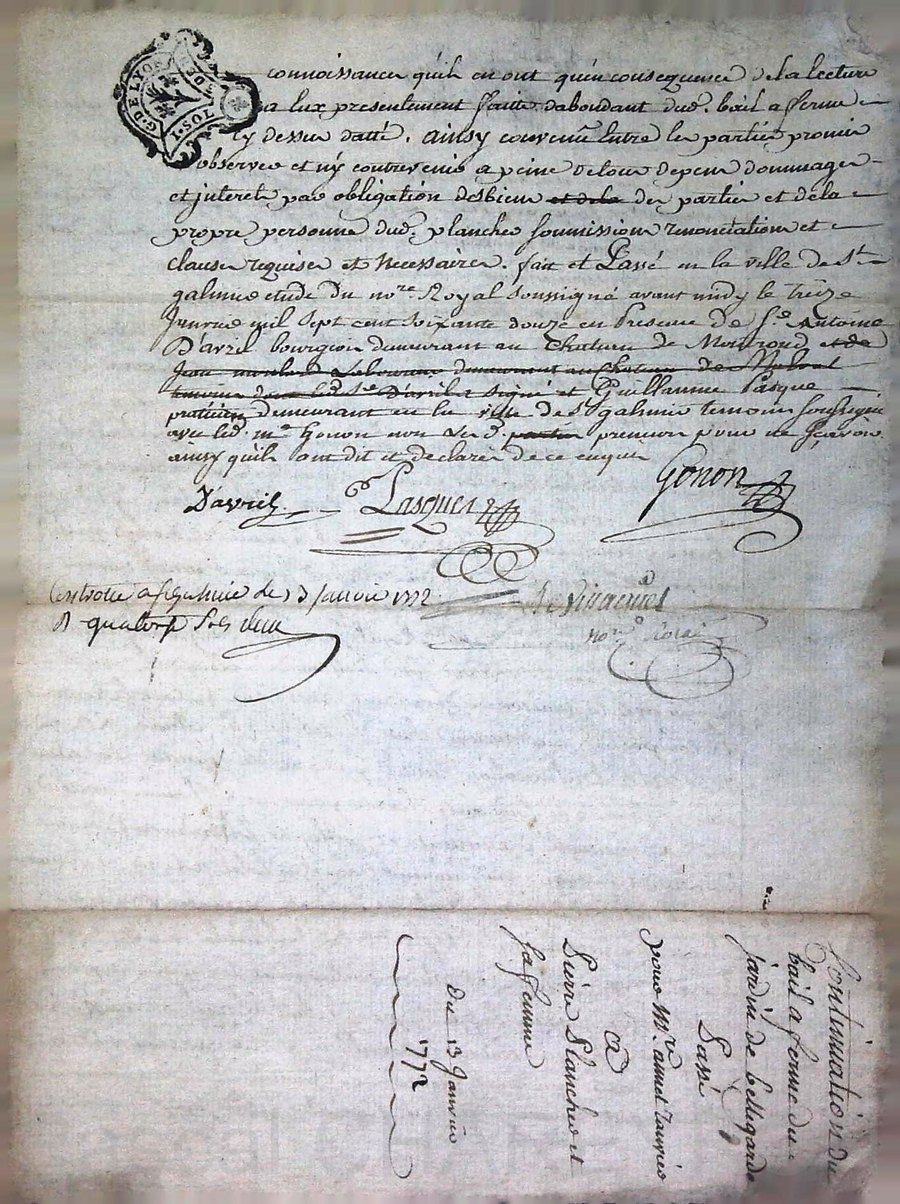 G. DE LYON
2 SOLS DE
connoissance quils en ont quen consequence de la lecture
a eux presentement faitte dabondant dud. bail a ferme
cy dessus datté. ainsy convenu entre les parties promis
observer et ny contrevenir a peine de tous depens dommages
et jnterets par obligation des biens et de la des parties et de la
propre personne dud. planches soumissions renonciations et
clauses requises et necessaires. fait et Passé en la ville de St.
galmier etude du nore. Royal soussigné avant midy le treize
Janvier mil sept cent soixante douze en Presence de Sr. Antoine
D'avril bourgeois demeurant au Chateau de Montrond et de
Jean Laboureur demeurant au Chateau de
temoins led. Sr. D'avril signé et Guillaume Pasque
praticien demeurant en la ville de St galmier temoins soussignés
avec led. me. Gonon non led. parties preneurs pour ne sçavoir
ainsy quils ont dit et declaré de ce enquis
D'avril. Pasques Gonon
Controllé a St Galmier le 13 Janvier 1772
R quatorze sols
nore Roial
Continuation du
bail a ferme du
jardin de bellegarde
Passé
pour Mre. annet
a
Pierre Planches et
sa femme
Du 13 Janvier
1772